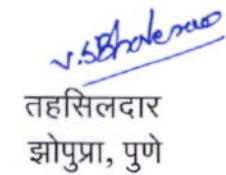 V.S Bhalerao
तहसिलदार
झोपुप्रा, पुणे